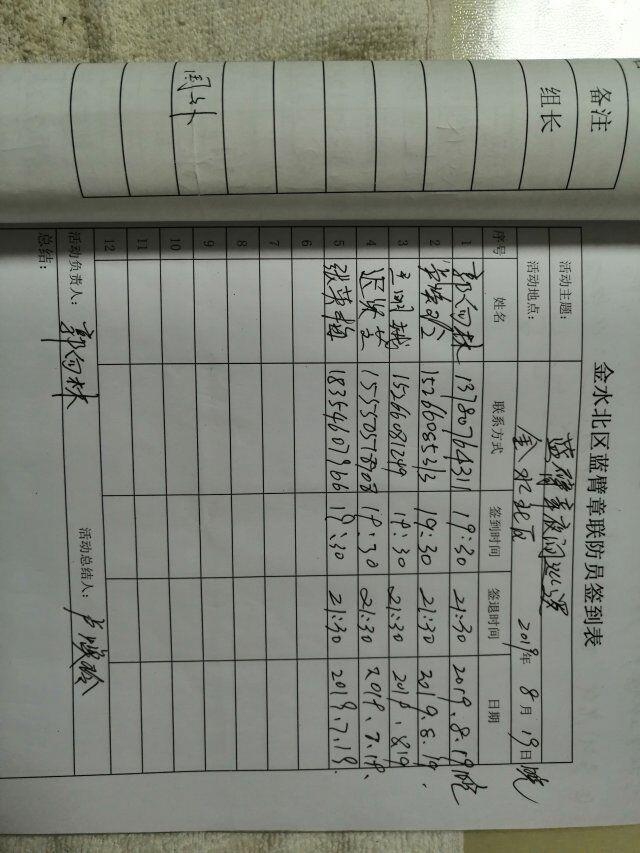 备注
组长
金水北区蓝臂章联防员签到表
活动主题: 蓝臂章夜间巡逻
活动地点: 金水北区 2019年 8月 19日晚
序号 姓名 联系方式 签到时间 签退时间 日期
1 13780764311 19:30 21:30 2019.8.19晚
2 15266085313 19:30 21:30 2019.8.19.
3 15266081249 19:30 21:30 2019.819
4 19:30 21:30 2019.7.19.
5 张荣梅 18354607966 19:30 21:30 2019.7.19.
6
7
8
9
10
11
12
活动负责人: 活动总结人:
总结: